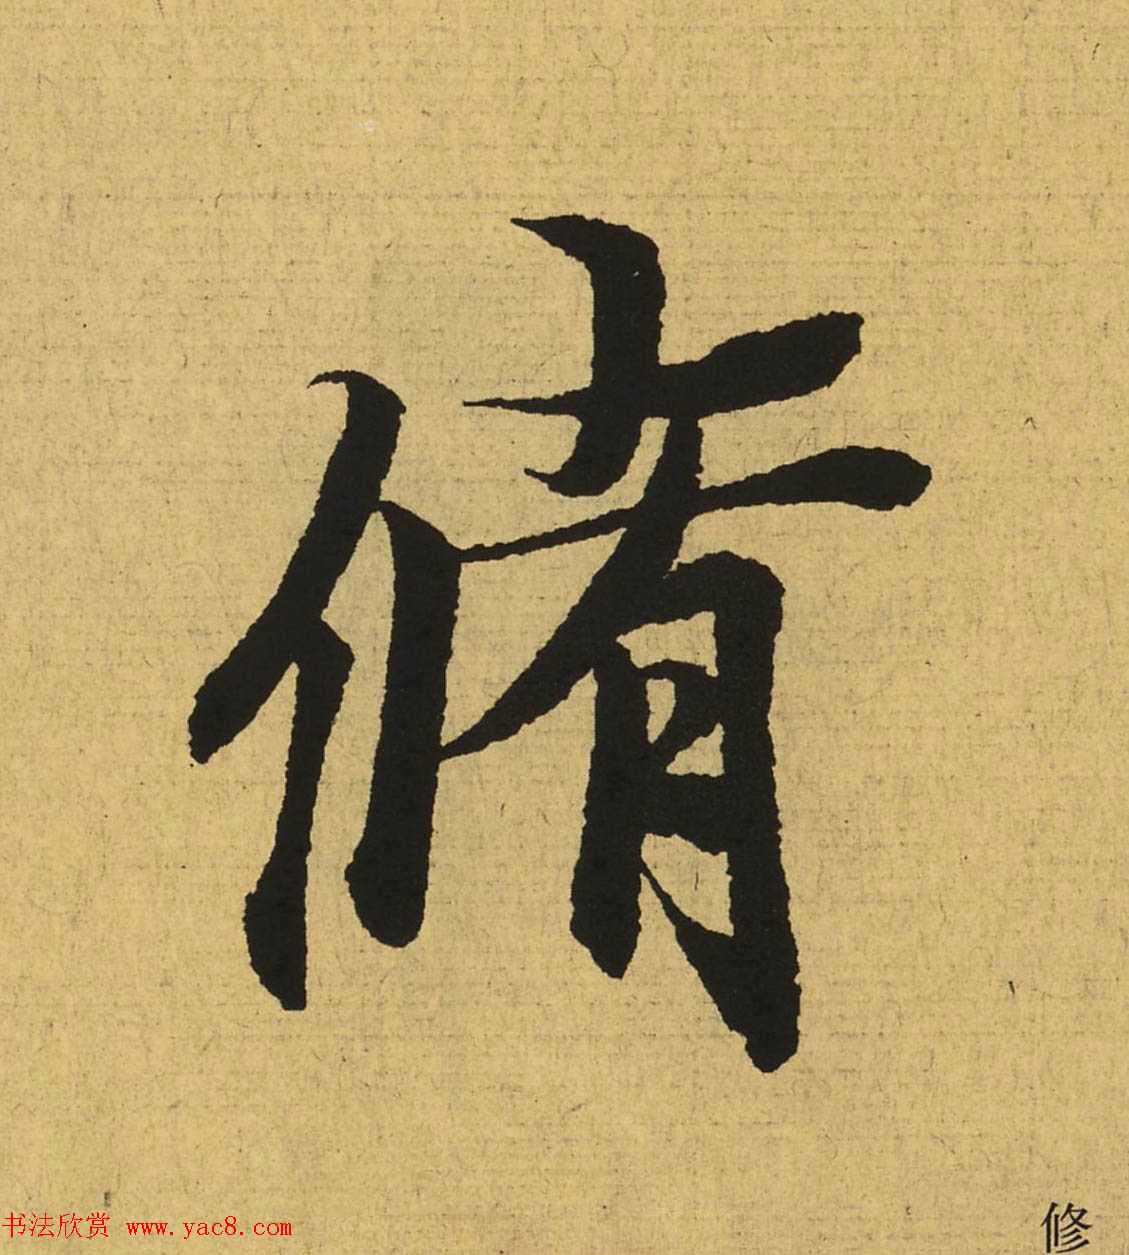 脩
书法欣赏 www.yac8.com
修